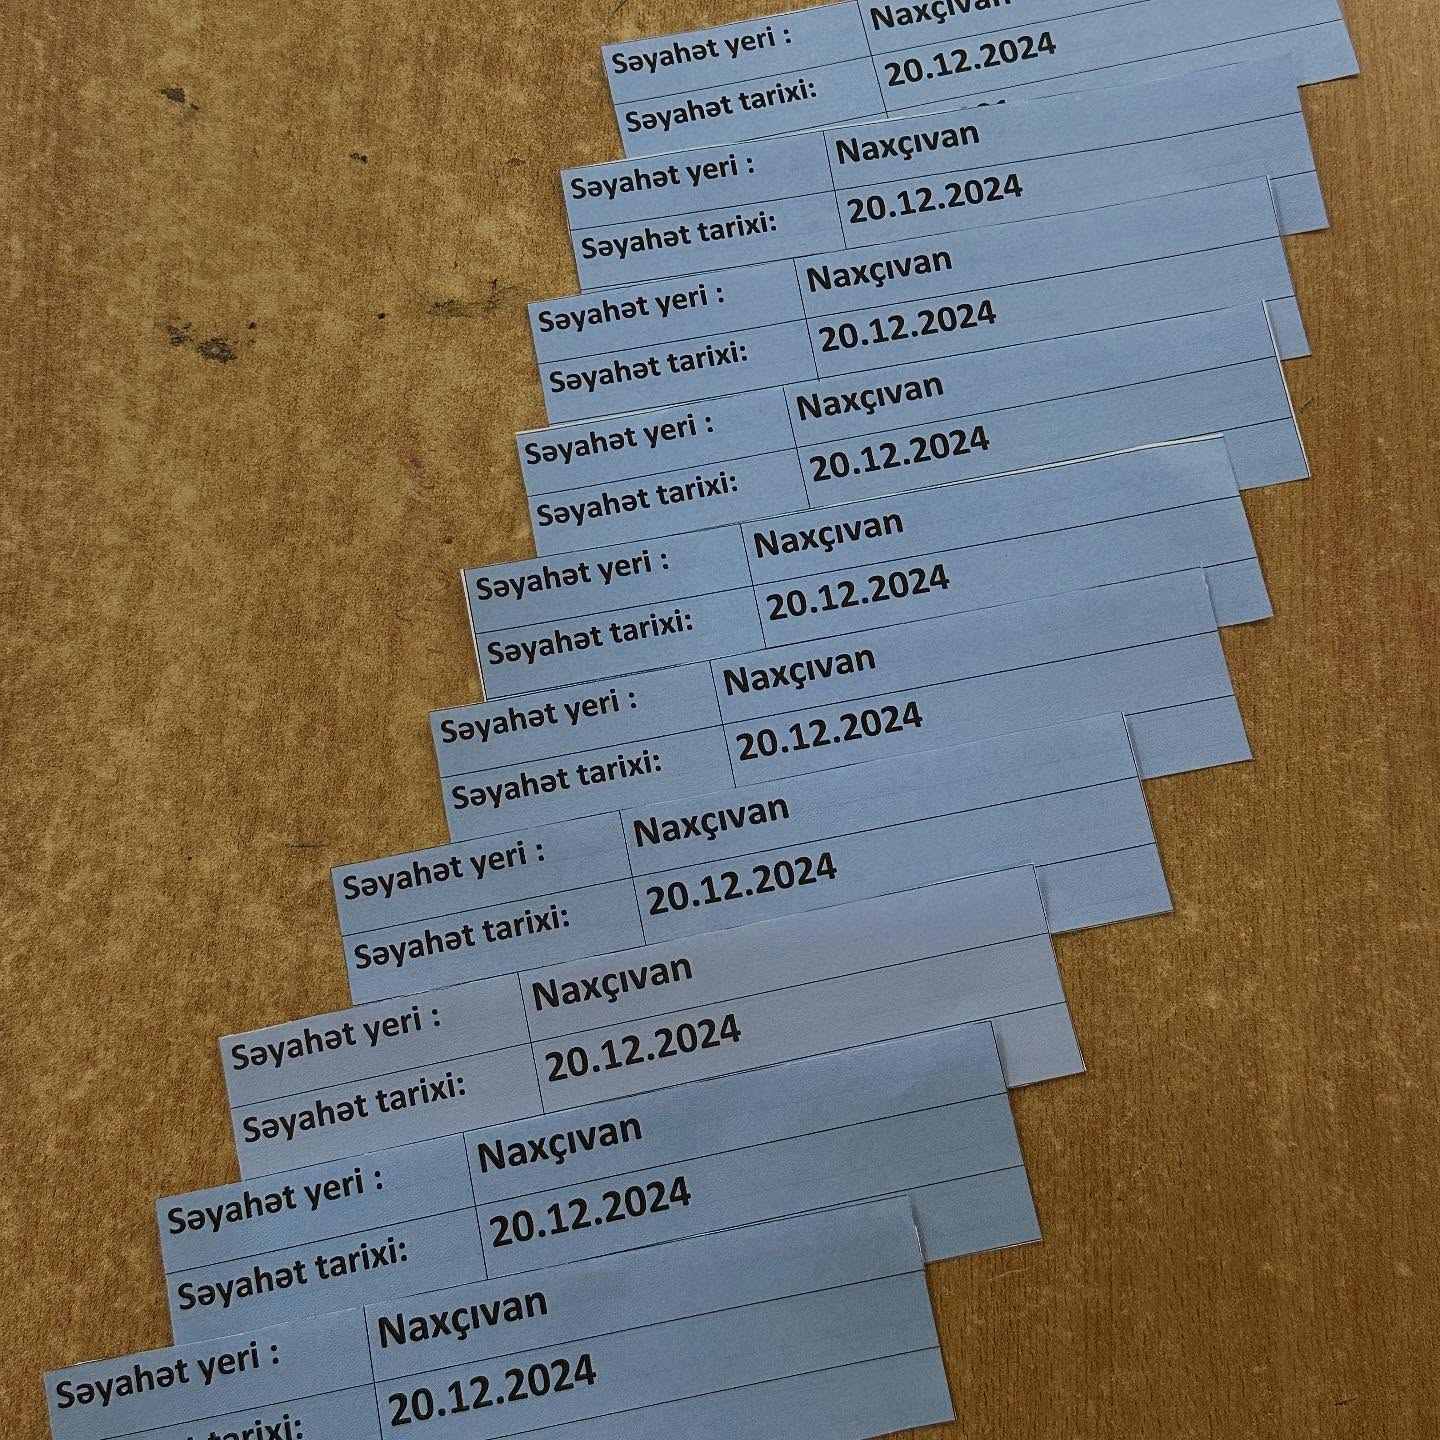 Səyahət yeri : Naxçıvan
Səyahət tarixi: 20.12.2024
Səyahət yeri : Naxçıvan
Səyahət tarixi: 20.12.2024
Səyahət yeri : Naxçıvan
Səyahət tarixi: 20.12.2024
Səyahət yeri : Naxçıvan
Səyahət tarixi: 20.12.2024
Səyahət yeri : Naxçıvan
Səyahət tarixi: 20.12.2024
Səyahət yeri : Naxçıvan
Səyahət tarixi: 20.12.2024
Səyahət yeri : Naxçıvan
Səyahət tarixi: 20.12.2024
Səyahət yeri : Naxçıvan
Səyahət tarixi: 20.12.2024
Səyahət yeri : Naxçıvan
Səyahət tarixi: 20.12.2024
Səyahət yeri : Naxçıvan
tarixi: 20.12.2024